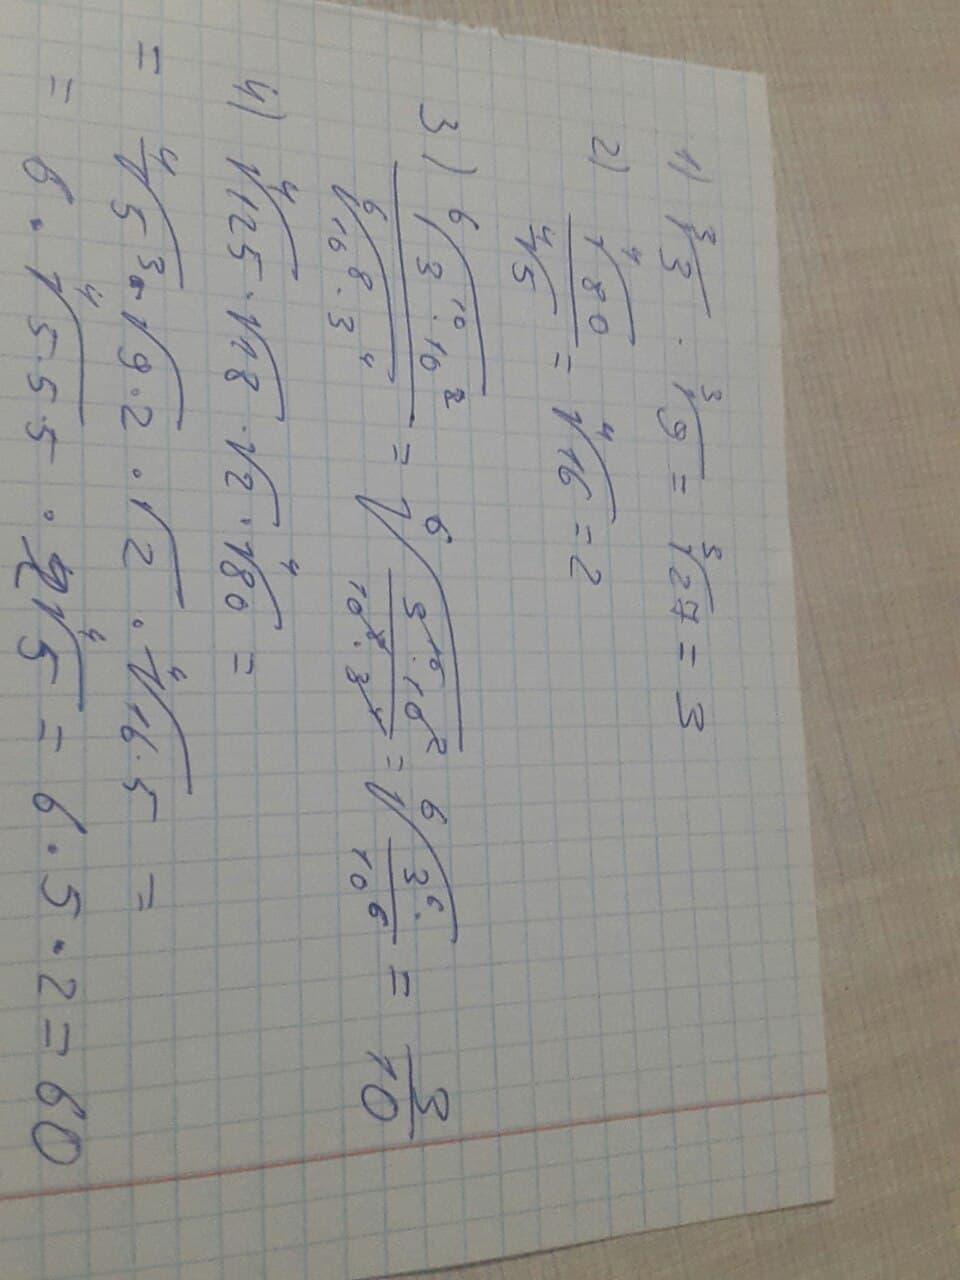 1) ∛3 · ∛9 = ∛27 = 3
2) ∜80 / ∜5 = ∜16 = 2
3) ⁶√(3¹⁰ · 10²) / ⁶√(10⁸ · 3⁴) = ⁶√((3¹⁰ · 10²) / (10⁸ · 3⁴)) = ⁶√(3⁶ / 10⁶) = 3/10
4) ∜125 · √18 · √2 · ∜80 =
= ∜5³ · √9·2 · √2 · ∜16·5 =
= 6 · ∜5·5·5 · 2∜5 = 6 · 5 · 2 = 60